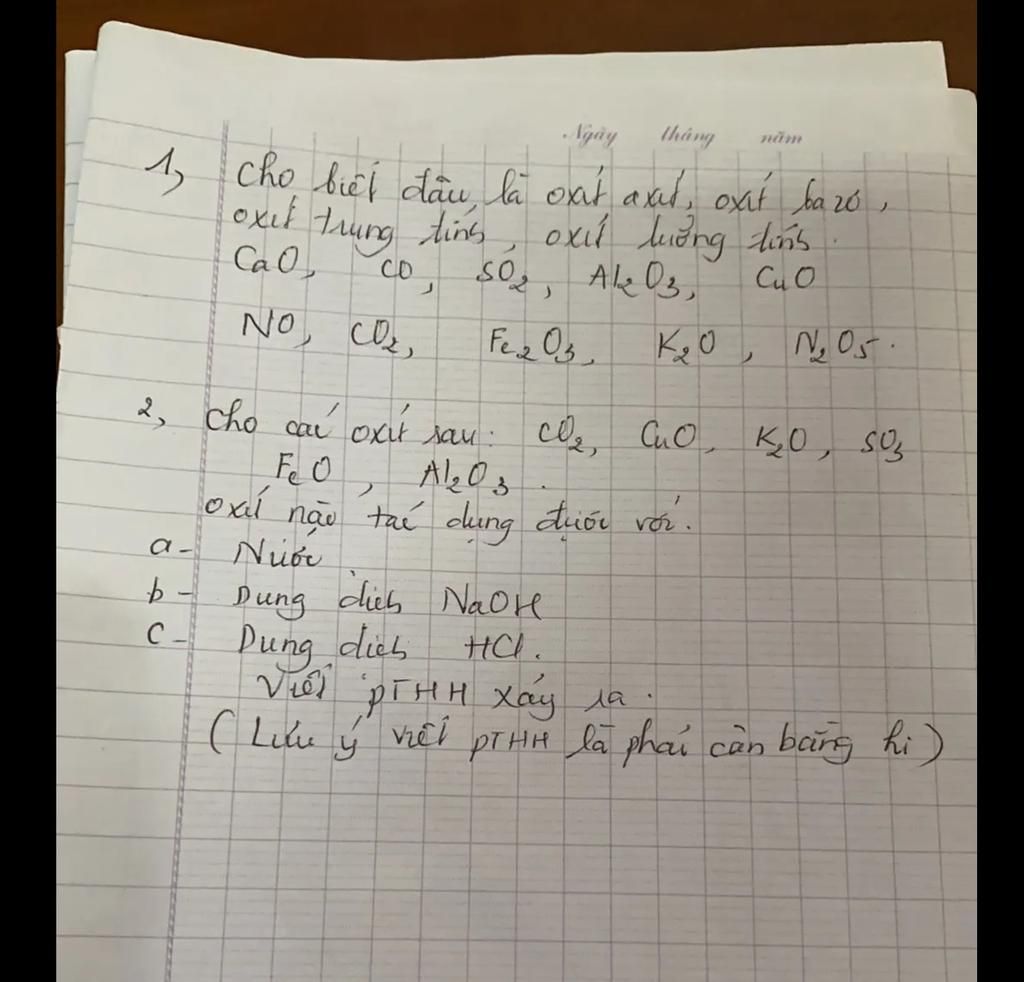 Ngày tháng năm
1, Cho biết đâu là oxit axit, oxit bazo,
oxit trung tính, oxit lưỡng tính.
CaO, CO, SO2, Al2O3, CuO
NO, CO2, Fe2O3, K2O, N2O5.
2, Cho các oxit sau: CO2, CuO, K2O, SO3
FeO, Al2O3.
oxit nào tác dụng được với.
a- Nước
b- Dung dịch NaOH
c- Dung dịch HCl.
Viết PTHH xảy ra.
(Lưu ý viết PTHH là phải cân bằng hi)